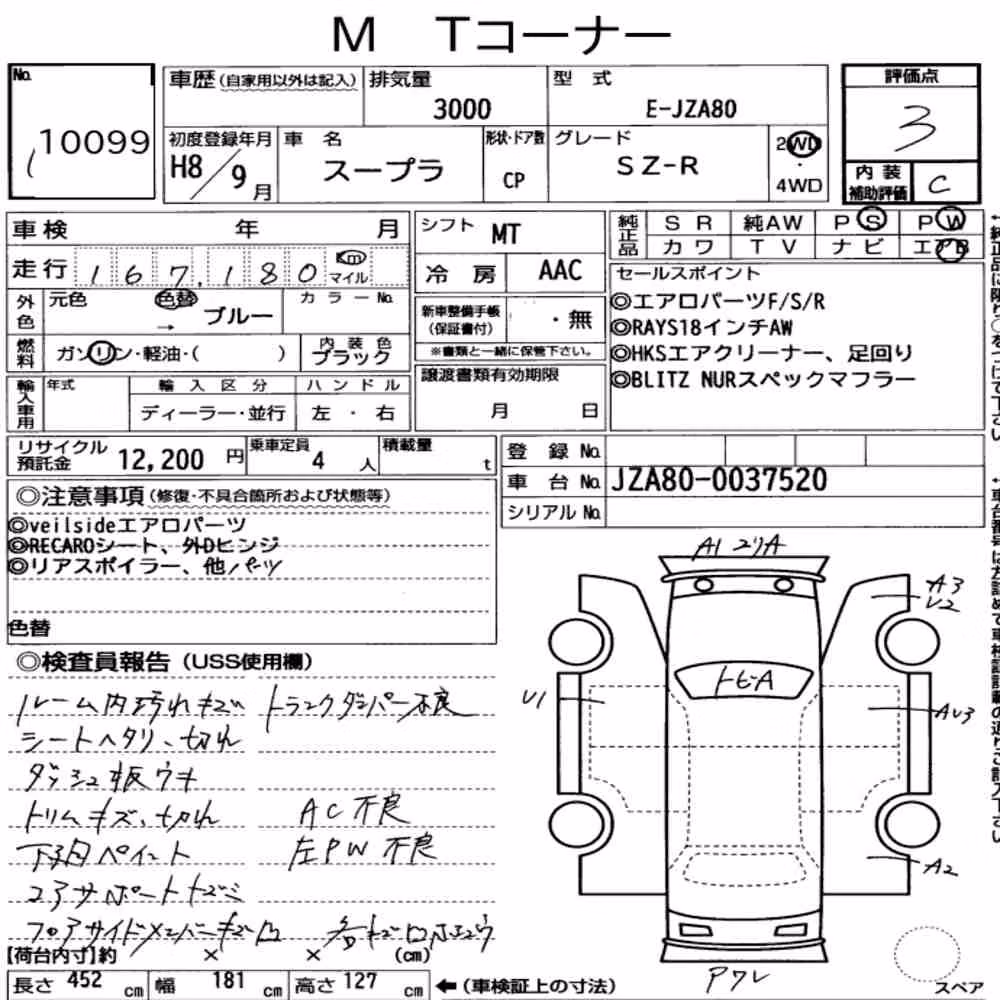 M Tコーナー
No.
10099
車歴 (自家用以外は記入)
排気量
3000
型 式
E-JZA80
評価点
3
初度登録年月
H8/9月
車 名
スープラ
形状・ドア数
CP
グレード
SZ-R
2WD
・
4WD
内装
補助評価
C
車検 年 月
シフト MT
純正品
SR 純AW PS PW
カワ TV ナビ エアB
走行 167,180 Km
マイル
冷房 AAC
セールスポイント
◎エアロパーツF/S/R
◎RAYS18インチAW
◎HKSエアクリーナー、足回り
◎BLITZ NURスペックマフラー
外色
元色 色替 カラーNo.
→ ブルー
新車整備手帳
(保証書付)
・無
※書類と一緒に保管下さい。
燃料
ガソリン・軽油・( )
内装色
ブラック
譲渡書類有効期限
月 日
輸入車用
年式 輸入区分 ハンドル
ディーラー・並行 左・右
リサイクル
預託金 12,200 円
乗車定員
4 人
積載量
t
登録No.
車台No. JZA80-0037520
シリアルNo.
◎注意事項(修復・不具合箇所および状態等)
◎veilsideエアロパーツ
◎RECAROシート、外Dヒンジ
◎リアスポイラー、他パーツ
色替
◎検査員報告 (USS使用欄)
ルーム内汚れキズ トランクダンパー不良
シートヘタリ、切れ
ダッシュ板ウキ
トリムキズ、切れ AC不良
下回ペイント 左PW不良
コアサポートキズ
フロアサイドメンバーキズ凹
【荷台内寸】約 × × (cm)
長さ 452 cm 幅 181 cm 高さ 127 cm ←(車検証上の寸法)
A1
A3
U2
トビA
U1
AU3
A2
Pワレ
スペア